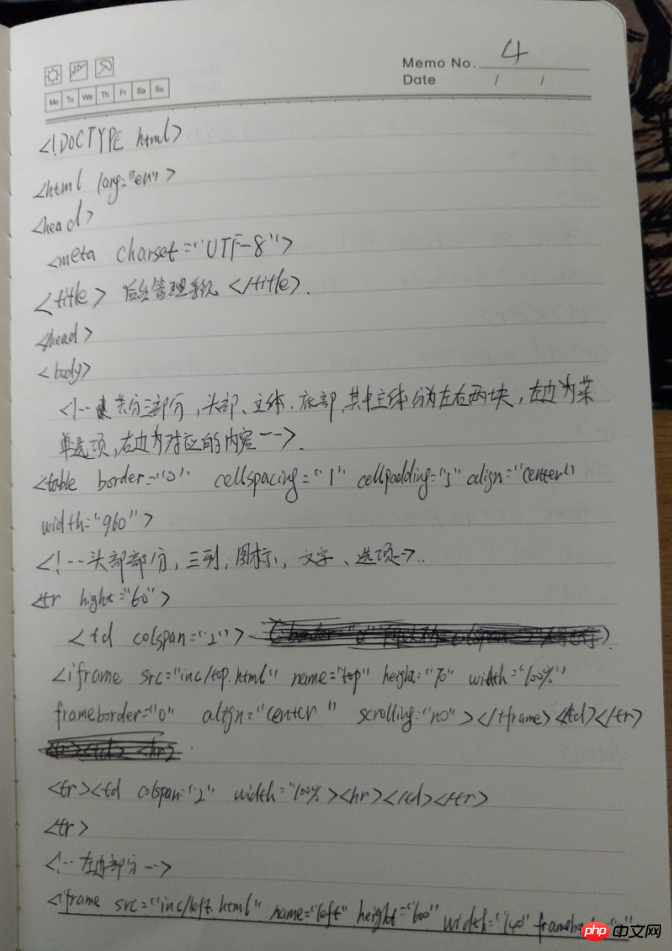 Memo No. 4
Mo Tu We Th Fr Sa Su
Date / /
<!DOCTYPE html>
<html lang="en">
<head>
<meta charset="UTF-8">
<title> 后台管理系统 </title>.
</head>
<body>
<!-- 共分三部分,头部、主体、底部,其中主体分为左右两块,左边为菜
单选项,右边为对应的内容-->.
<table border="0" cellspacing="1" cellpadding="5" align="center"
width="960">
<!--头部部分,三列,图标、文字、选项->..
<tr hight="60">
<td colspan="2">
<iframe src="inc/top.html" name="top" height="70" width="100%"
frameborder="0" align="center" scrolling="no"></iframe></td></tr>
<tr><td colspan="2" width="100%><hr></td></tr>
<tr>
<!--左边部分-->
<iframe src="inc/left.html" name="left" height="600" width="140"
php 中文网